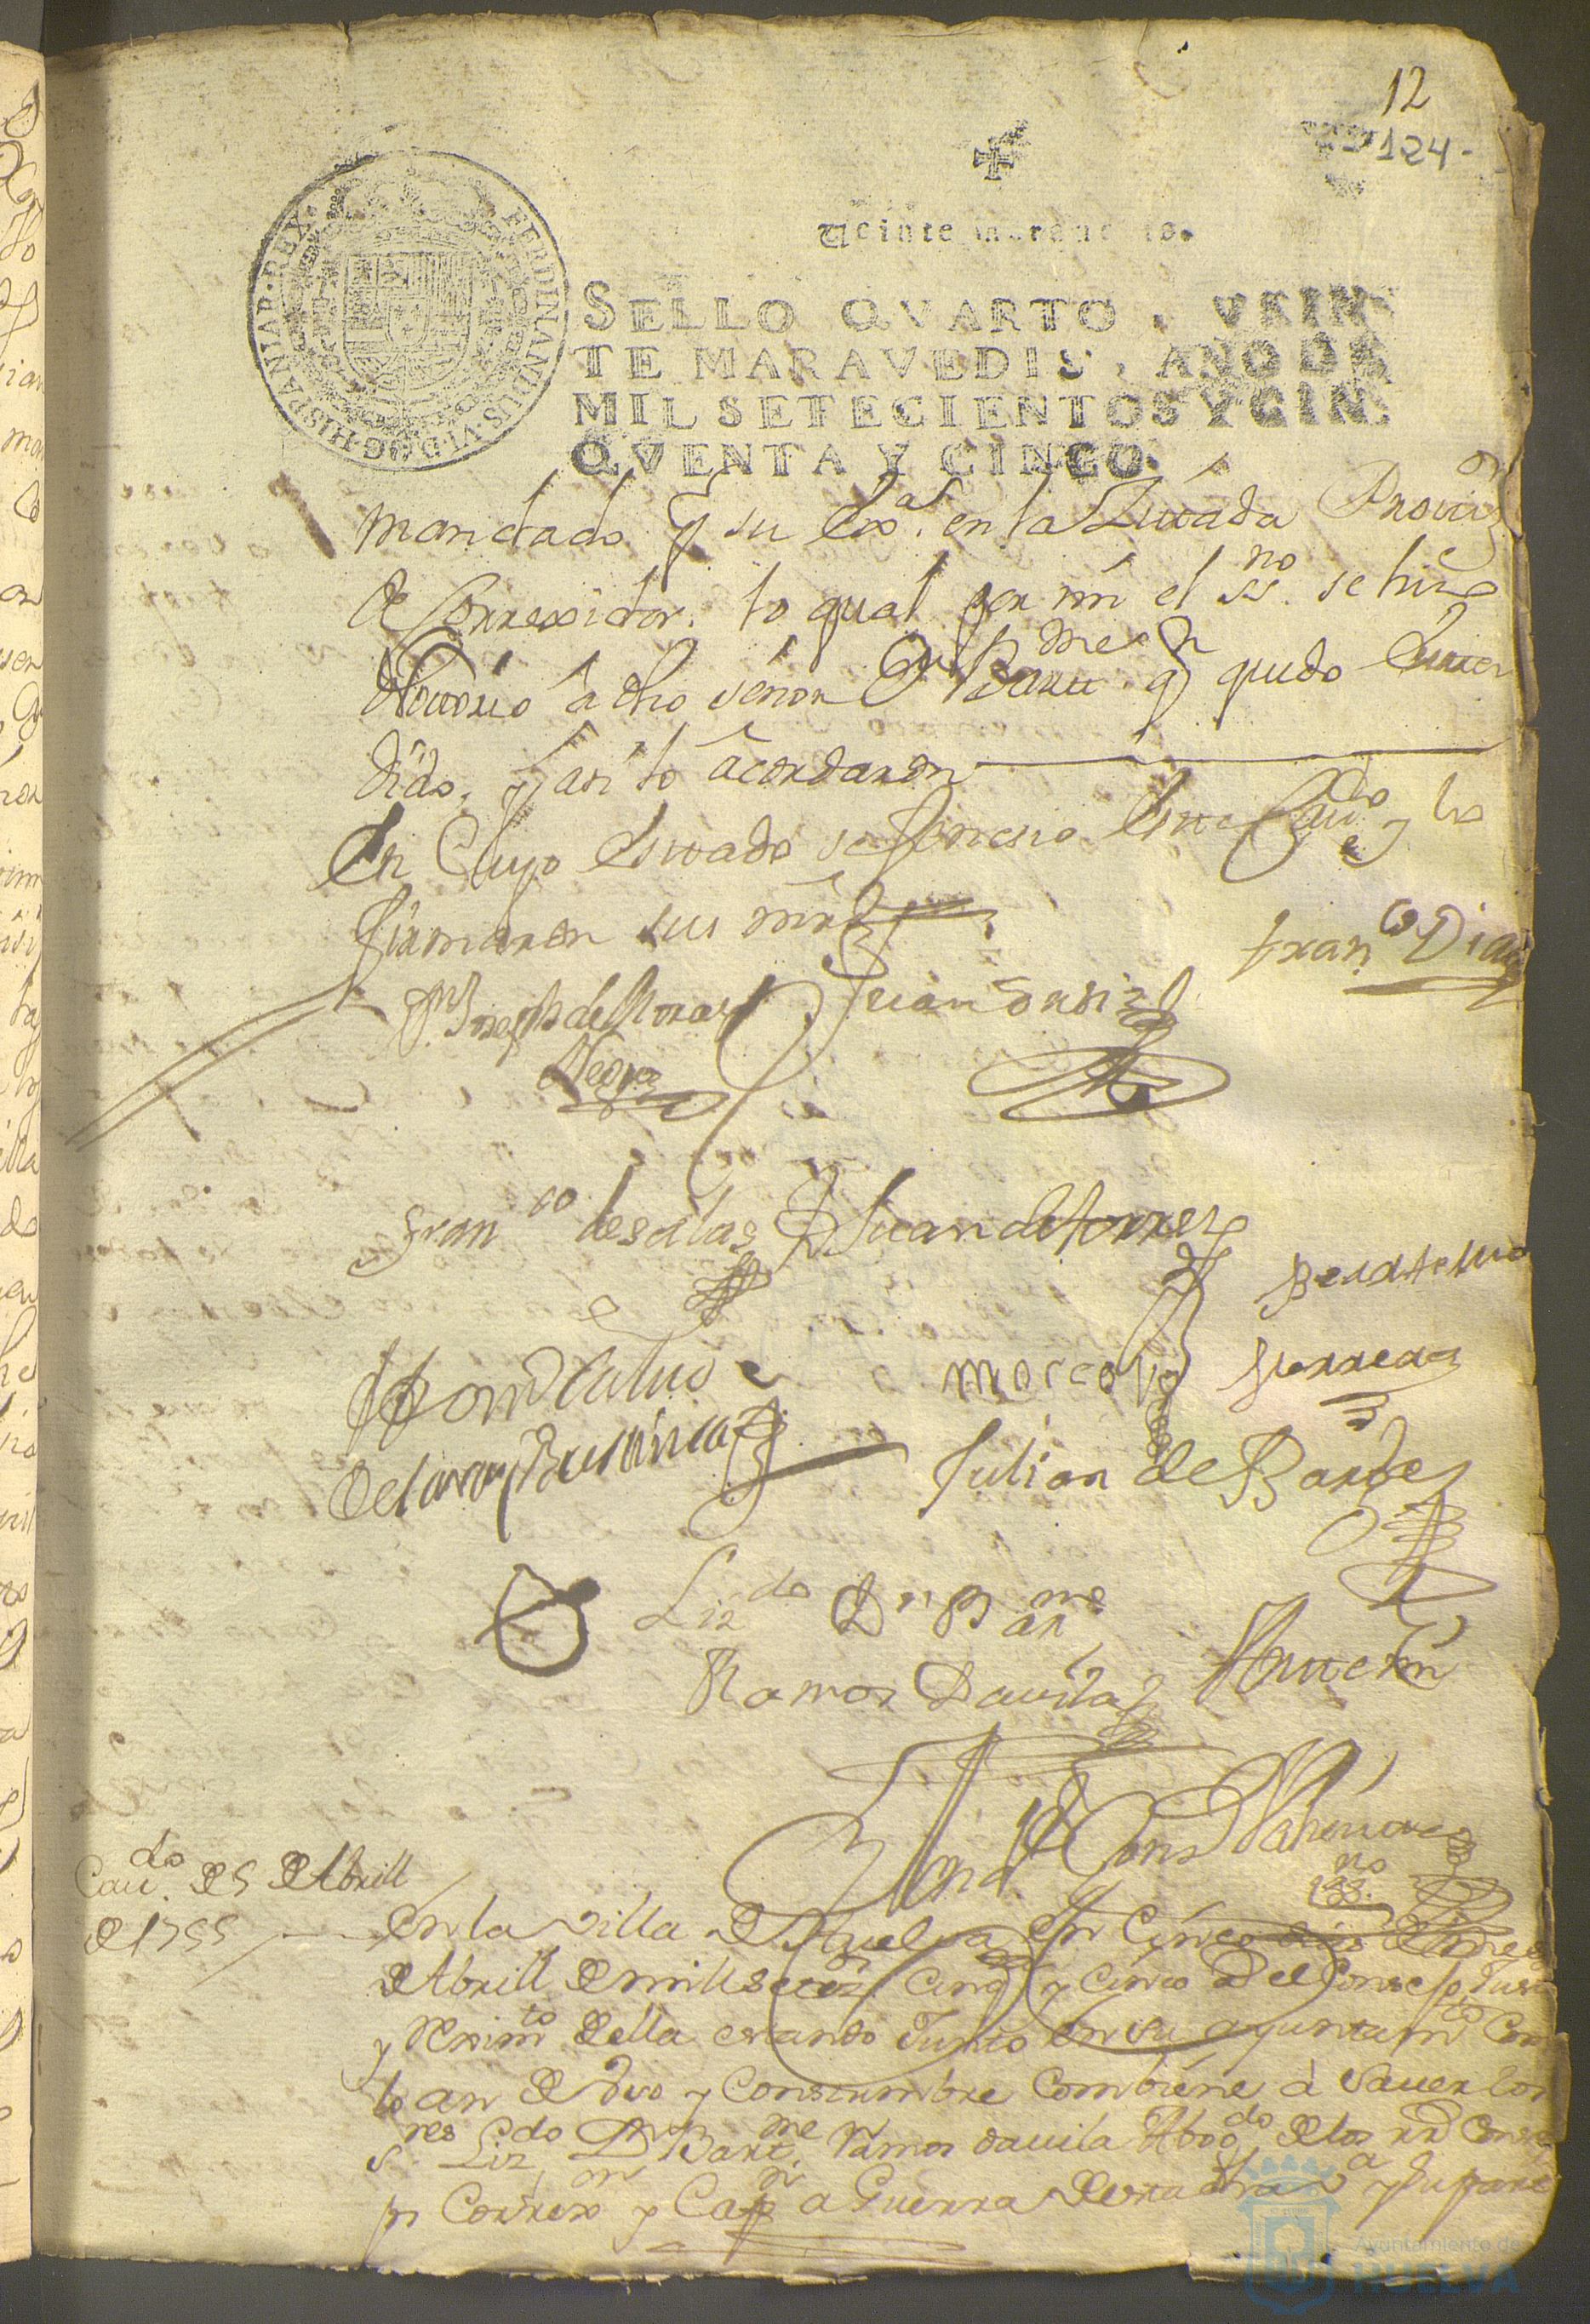 12
124
Veinte maravedis.
FERDINANDUS·VI·D·G·HISPANIAR·REX·
SELLO QVARTO, VEIN-
TE MARAVEDIS, AÑO DE
MIL SETECIENTOS Y CIN-
QVENTA Y CINCO.
mandado p su Exa. en la Zitada Provion
de Correxidor. lo qual por mi el ssno. se hizo
Notorio a dho señor Dn Bartme qn quedo Enten
dido, y asi lo acordaron
En Cuyo Estado se fenezio Este Cavdo y lo
firmaron sus mrds
Franco Diaz
Dn Joseph de Moras
Negro
Juan Ortiz
Franco de salas
Juan de torres
Marcos
Herrera
Julian de Barbe
Lizdo Dn Barme
Ramos Davila
Ante mi
Cavdo de 5 de Abrill
de 1755
En la villa de Huelva En Cinco dias del mes
de Abrill de mill setezs Cinqta y Cinco el Consejo Justa
y Reximto della estando Junto En su ayuntamto Con
lo an de Uso y Constumbre Combiene a saver los
sres Lizdo Dn Bartme Ramos davila Abogdo de los rrs Conse
js Correxor y Capn a Guerra
Ayuntamiento de
HUELVA